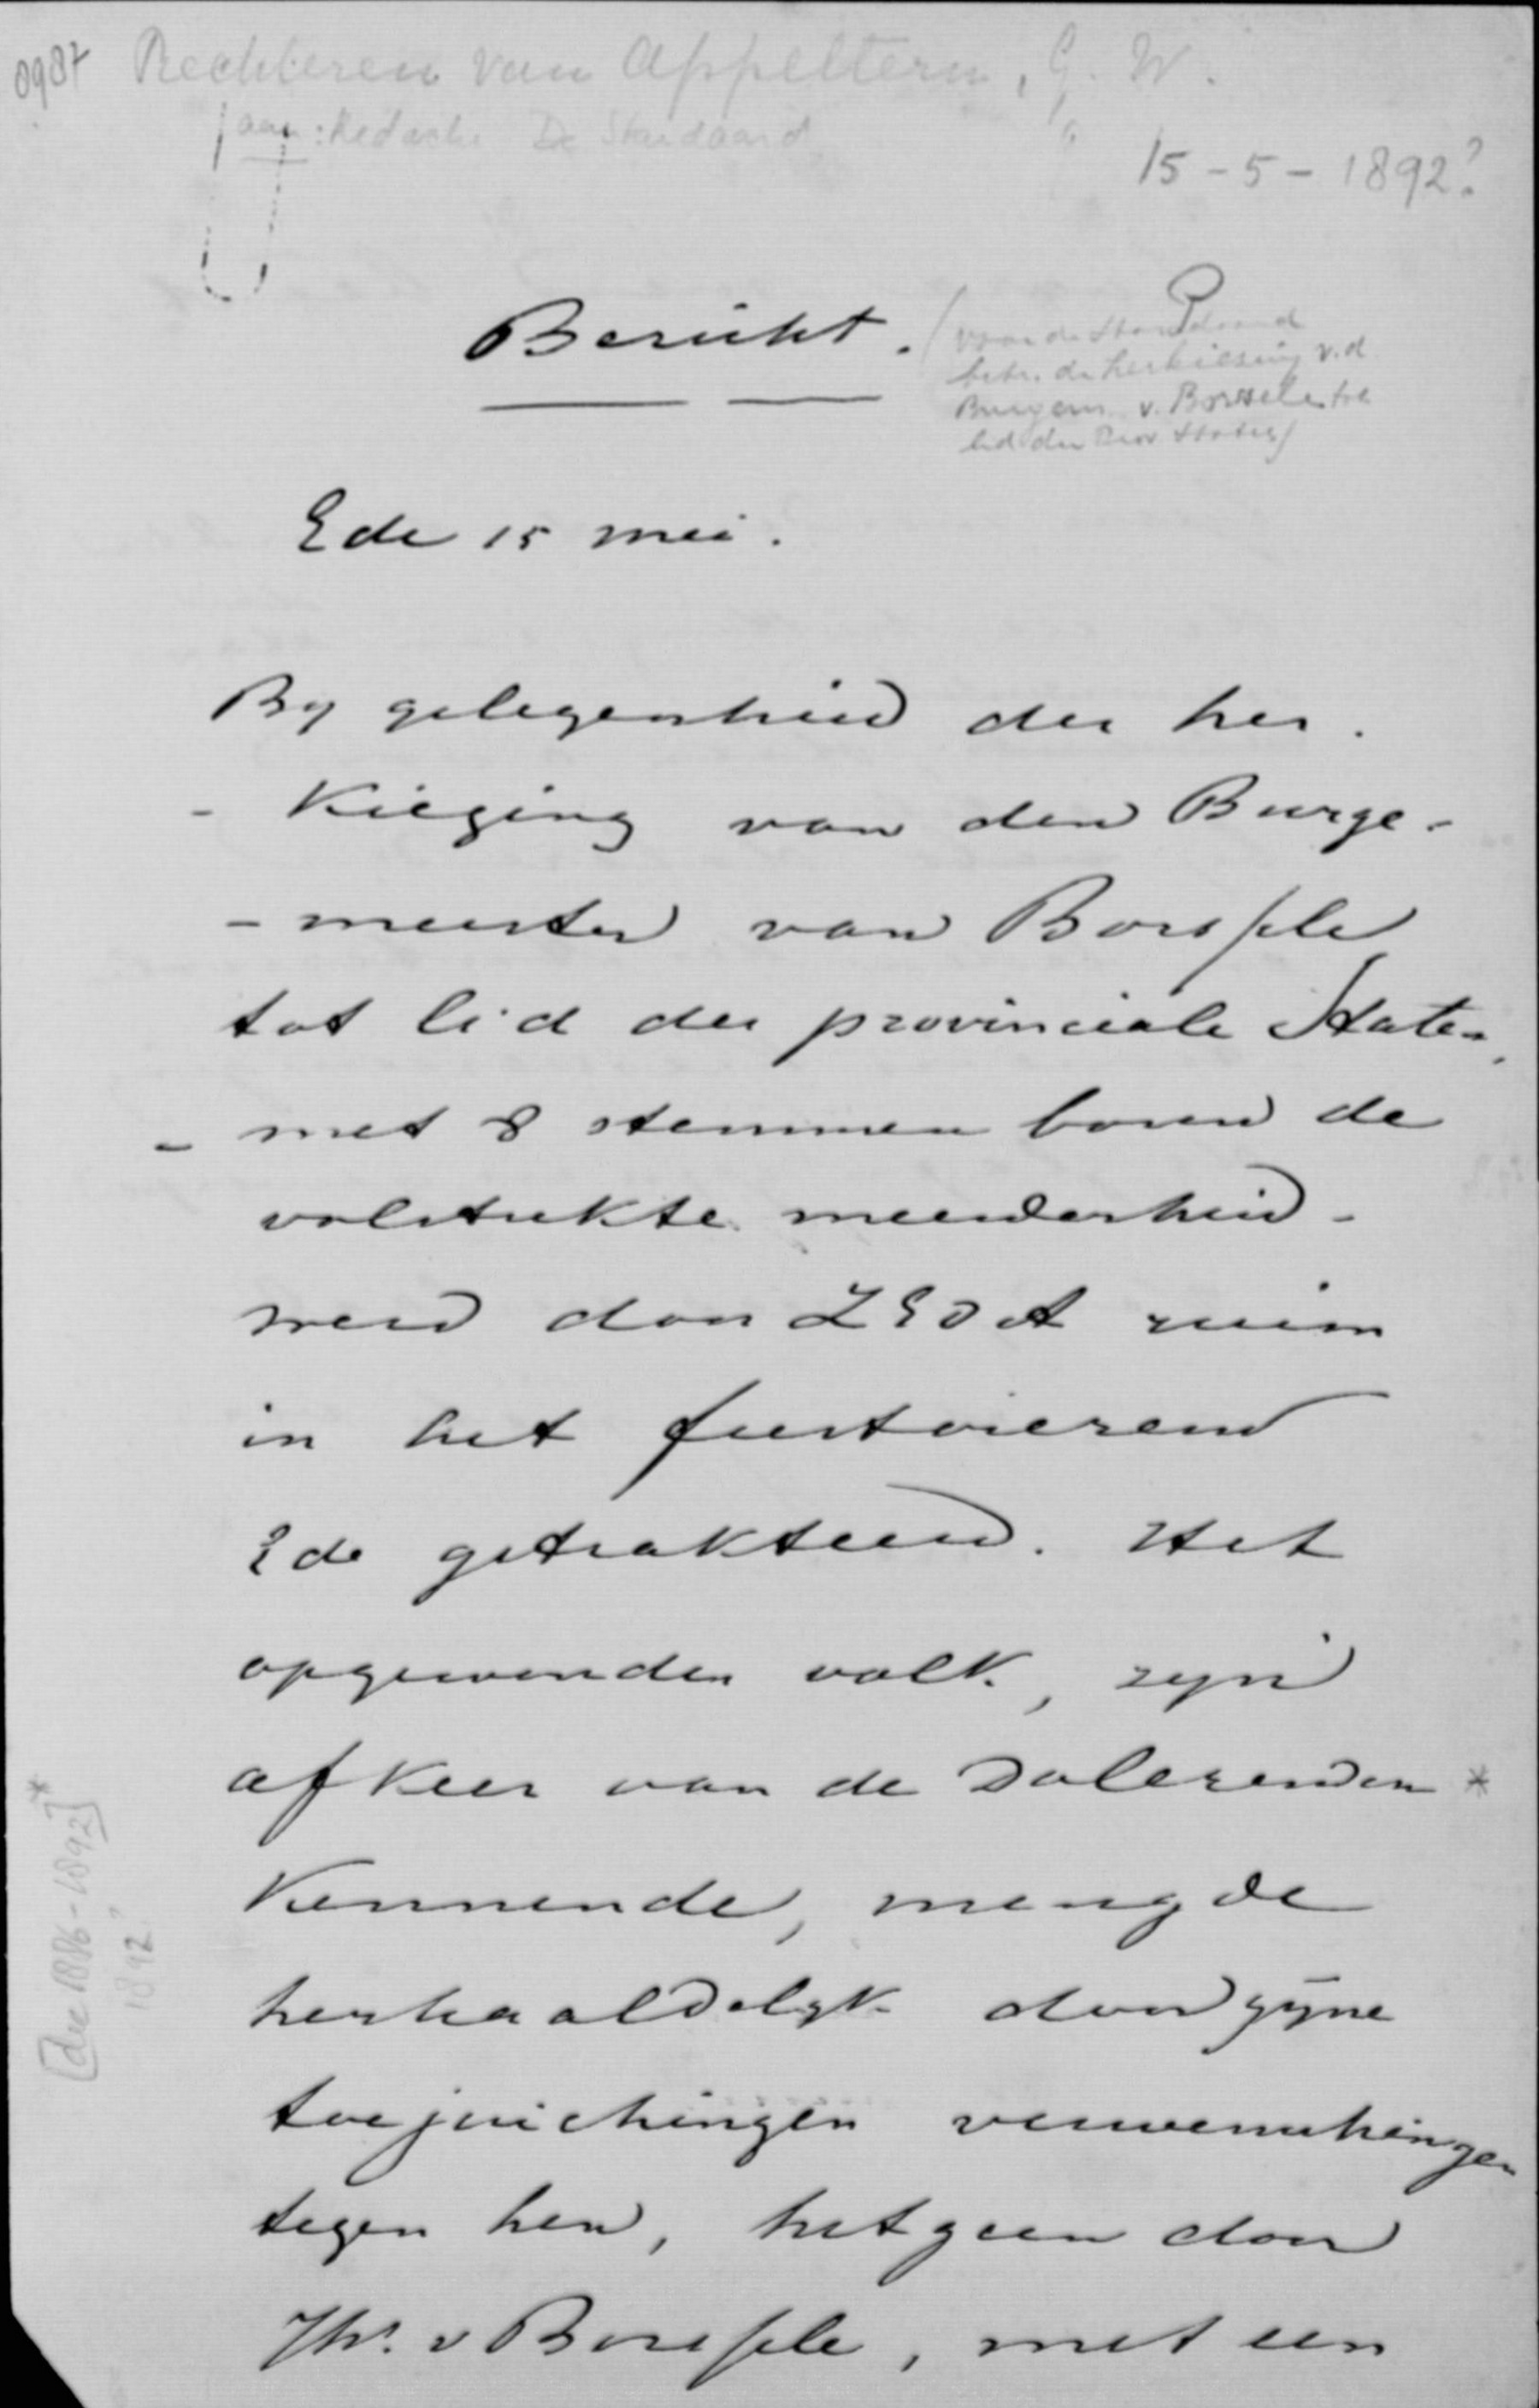 0987 Rechteren van Appeltern, G. W.
aan: Redactie De Standaard
15-5-1892?
Bericht. (voor de Standaard
betr. de herkiesing v.d.
Burgem. v. Borssele tot
lid der Prov Staten)
Ede 15 mei.
By gelegenheid der her.
- kiezing van den Burge-
- meester van Borssele
tot lid der provinciale Staten,
- met 8 stemmen boven de
volstrekte meerderheid -
werd door ZEDA ruim
in het feestvierend
Ede getrakteerd. Het
opgewonden volk, zyn
afkeer van de Dolerenden *
kennende, mengde
herhaaldelyk door zyne
toejuichingen verwenschingen
tegen hen, hetgeen door
Jhr. v Borssele, met een
[dec 1886-1892]*
1892?